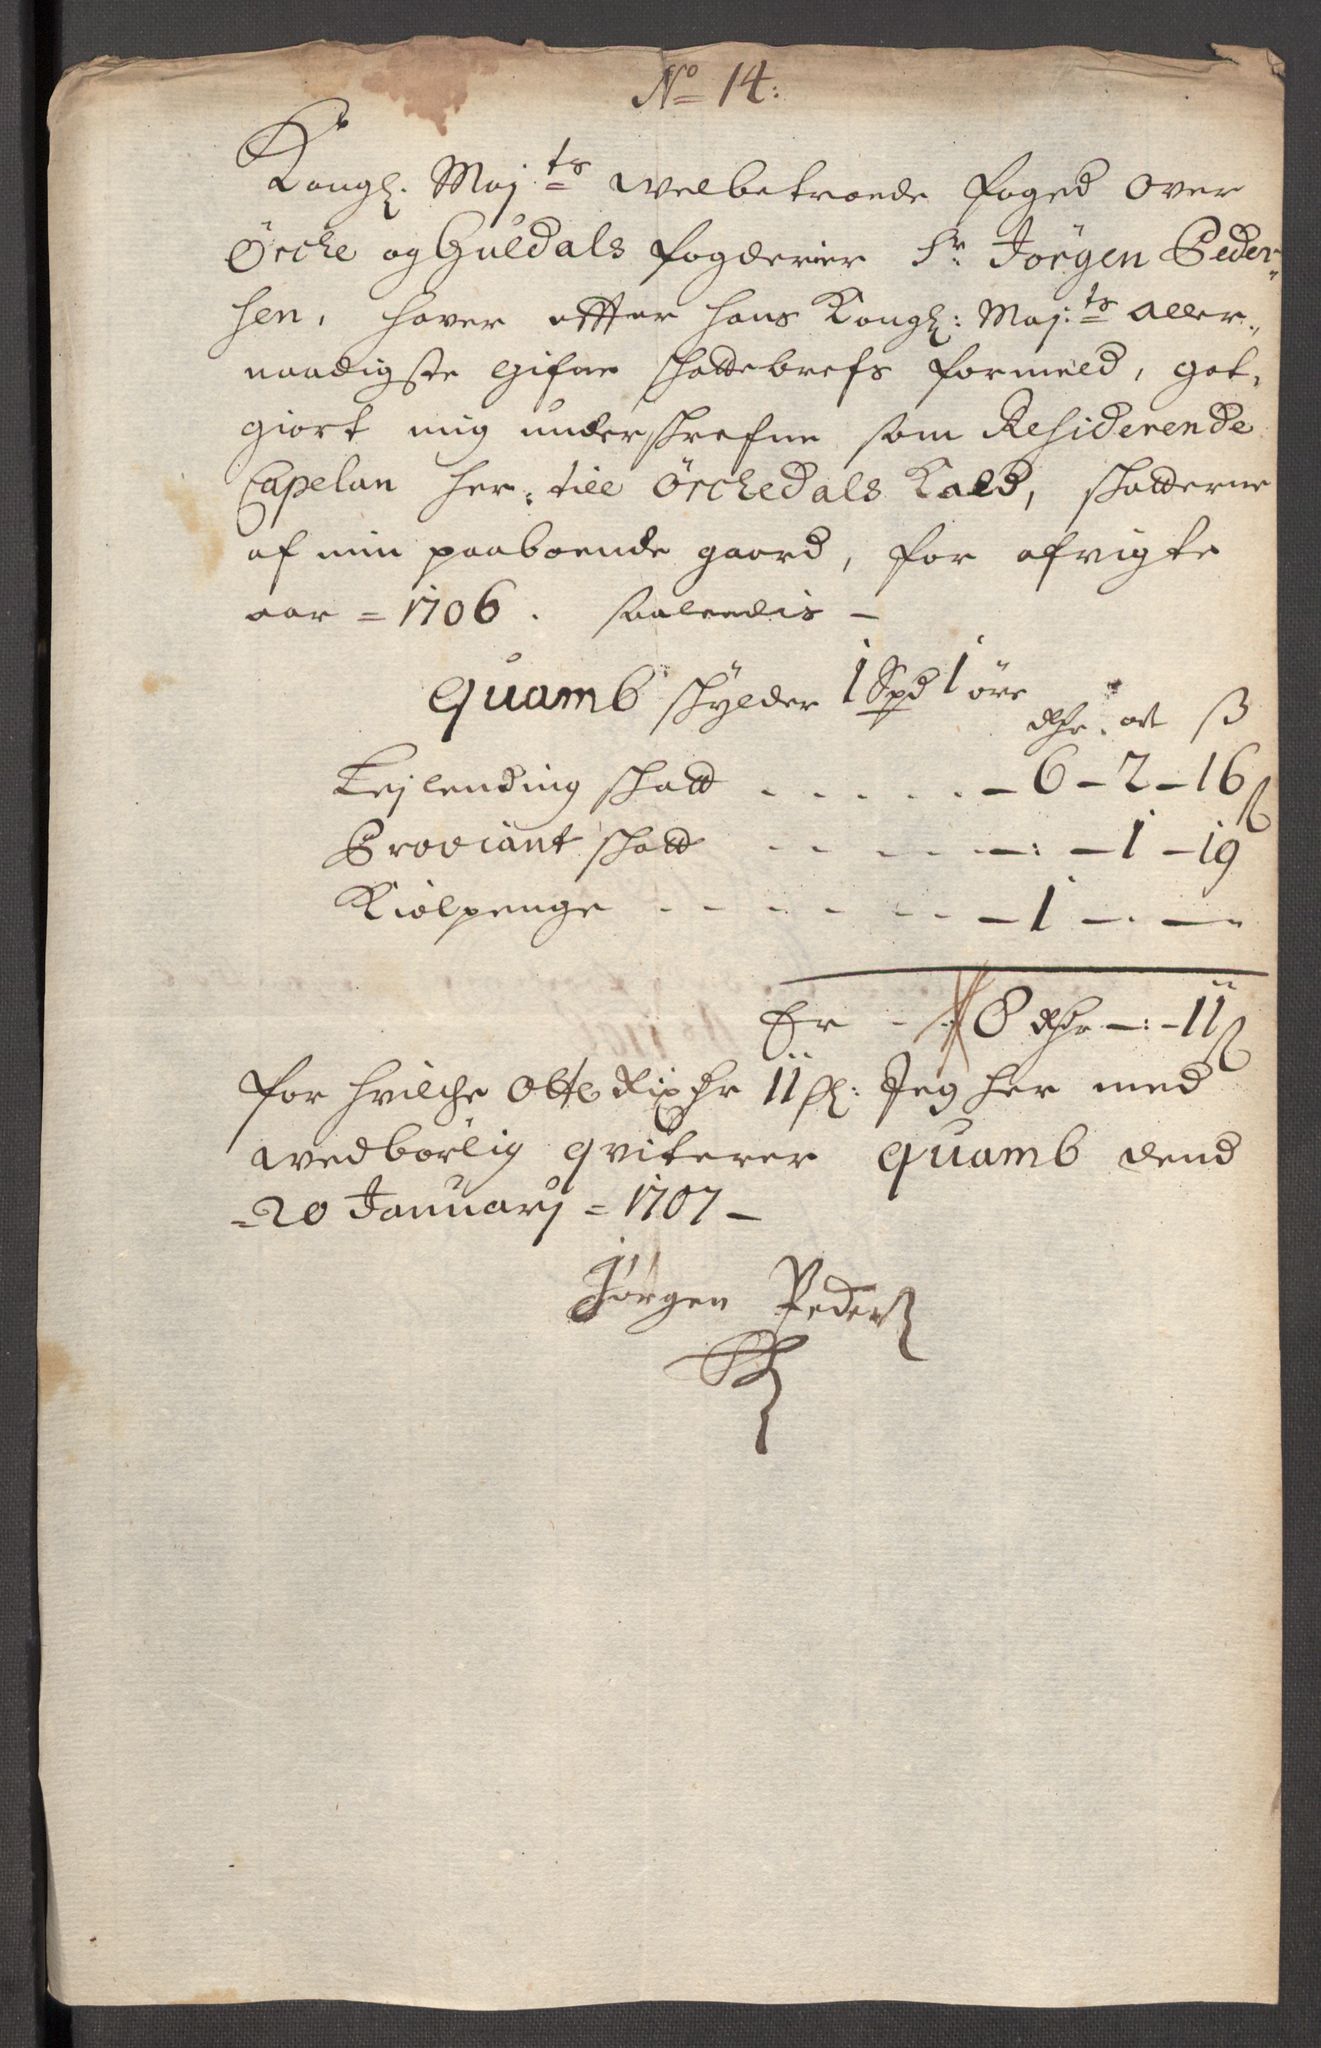 No 14:
Kongl. Maj.ts welbetroede foged over
Örche og Guldals fogderier Sr. Jörgen Peder-
sen, hafver efter hans Kongl: Maj:ts aller-
naadigste gifne schattebrefs formeld, got-
giort mig underschrefne som Residerende
Capelan her till Örchedals Kald, schatterne
af min paaboende gaard, for afvigte
aar = 1706. saaledis –
Quamb schylder 1 Spd 1 öre
Rdr. ort ß
Lejlending schatt . . . . . – 6 – 2 – 16 ß
Proviant schatt - - - - –: – 1 – 19
Kiölpenge - - - - - - – 1 – . –
Er - - 8 Rdr –:– 11 ß
for hvilche Otte Rixdr 11 sl: Jeg her med
wedbörlig qviterer Quamb dend
20 Januarj = 1707 –
Jörgen Peders